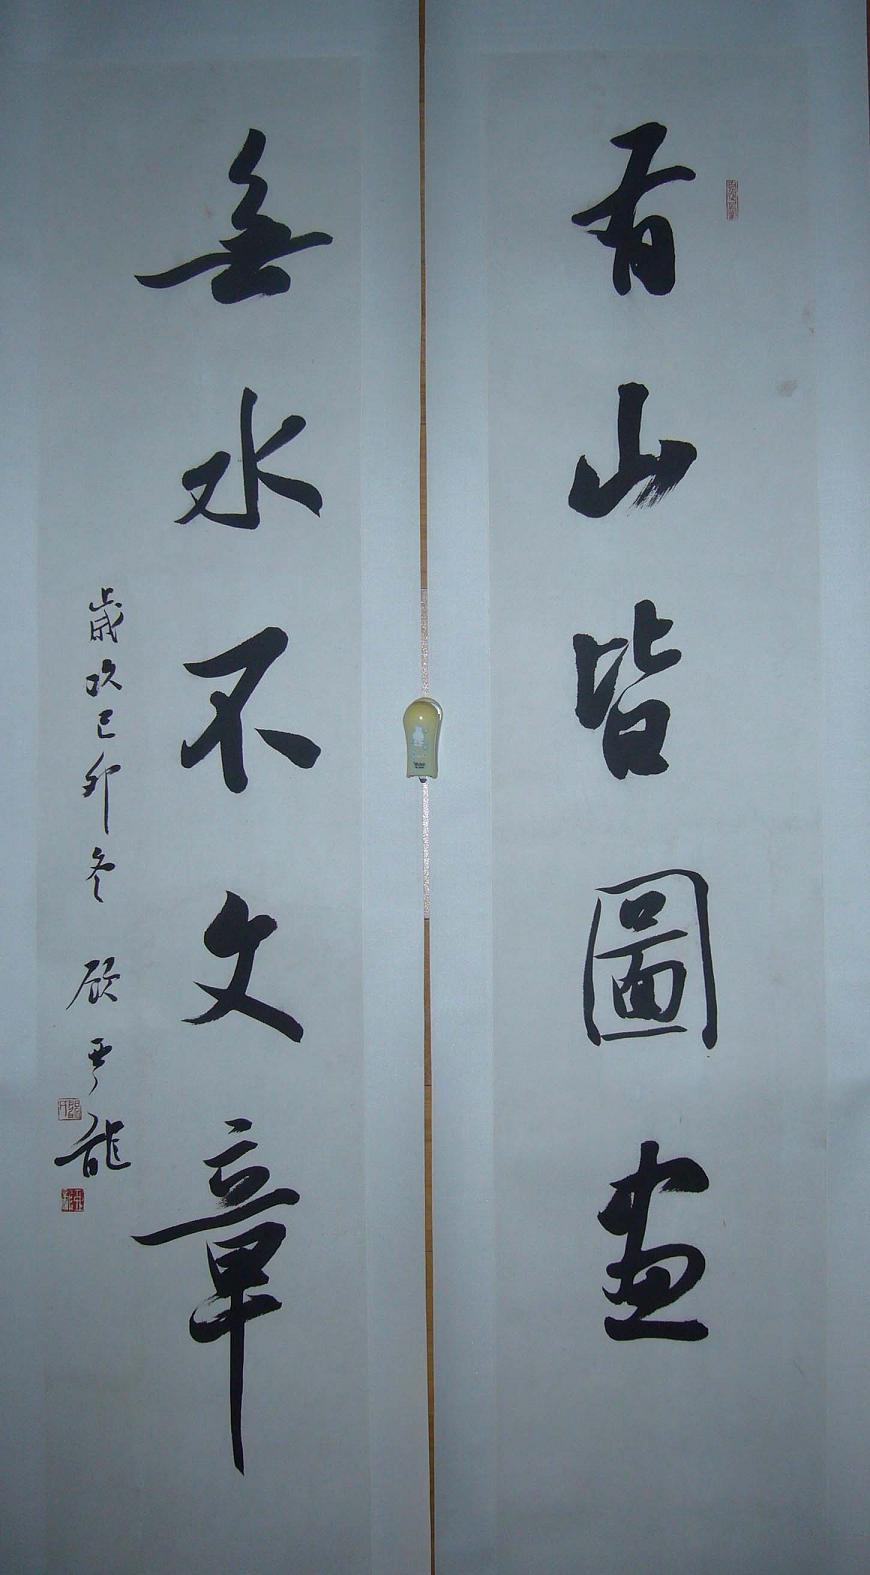 有山皆圖畫
無水不文章
歲次己卯冬 顧亞龍